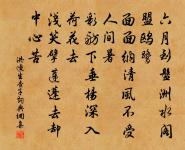 六月到盤洲水閣
盟鷗鷺
面面納清風不受
人間暑
彩舫下垂楊深入
荷花去
淺笑擘蓮蓬去却
中心苦
洪適生查子詞典網集